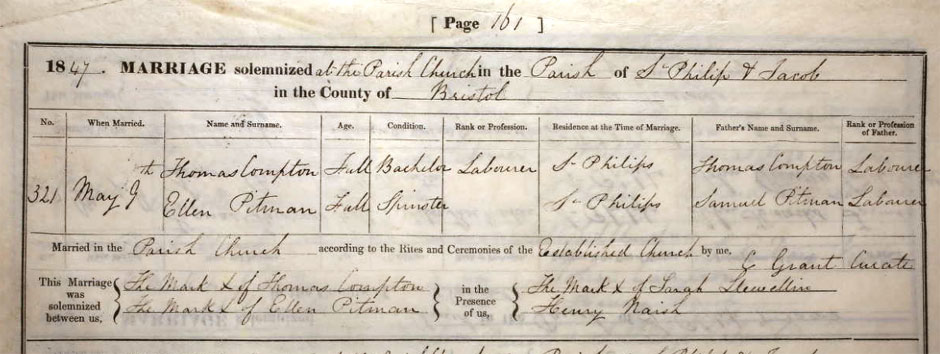 [ Page 161 ]
1847. MARRIAGE solemnized at the Parish Church in the Parish of St Philip & Jacob
in the County of Bristol
No. When Married. Name and Surname. Age. Condition. Rank or Profession. Residence at the Time of Marriage. Father's Name and Surname. Rank or Profession of Father.
321 May 9th Thomas Compton Full Bachelor Labourer St Philips Thomas Compton Labourer
Ellen Pitman Full Spinster St Philips Samuel Pitman Labourer
Married in the Parish Church according to the Rites and Ceremonies of the Established Church by me,
G Grant Curate
This Marriage was solemnized between us, { The Mark X of Thomas Compton } in the Presence of us, { The Mark X of Sarah Llewellin
The Mark X of Ellen Pitman Henry Naish